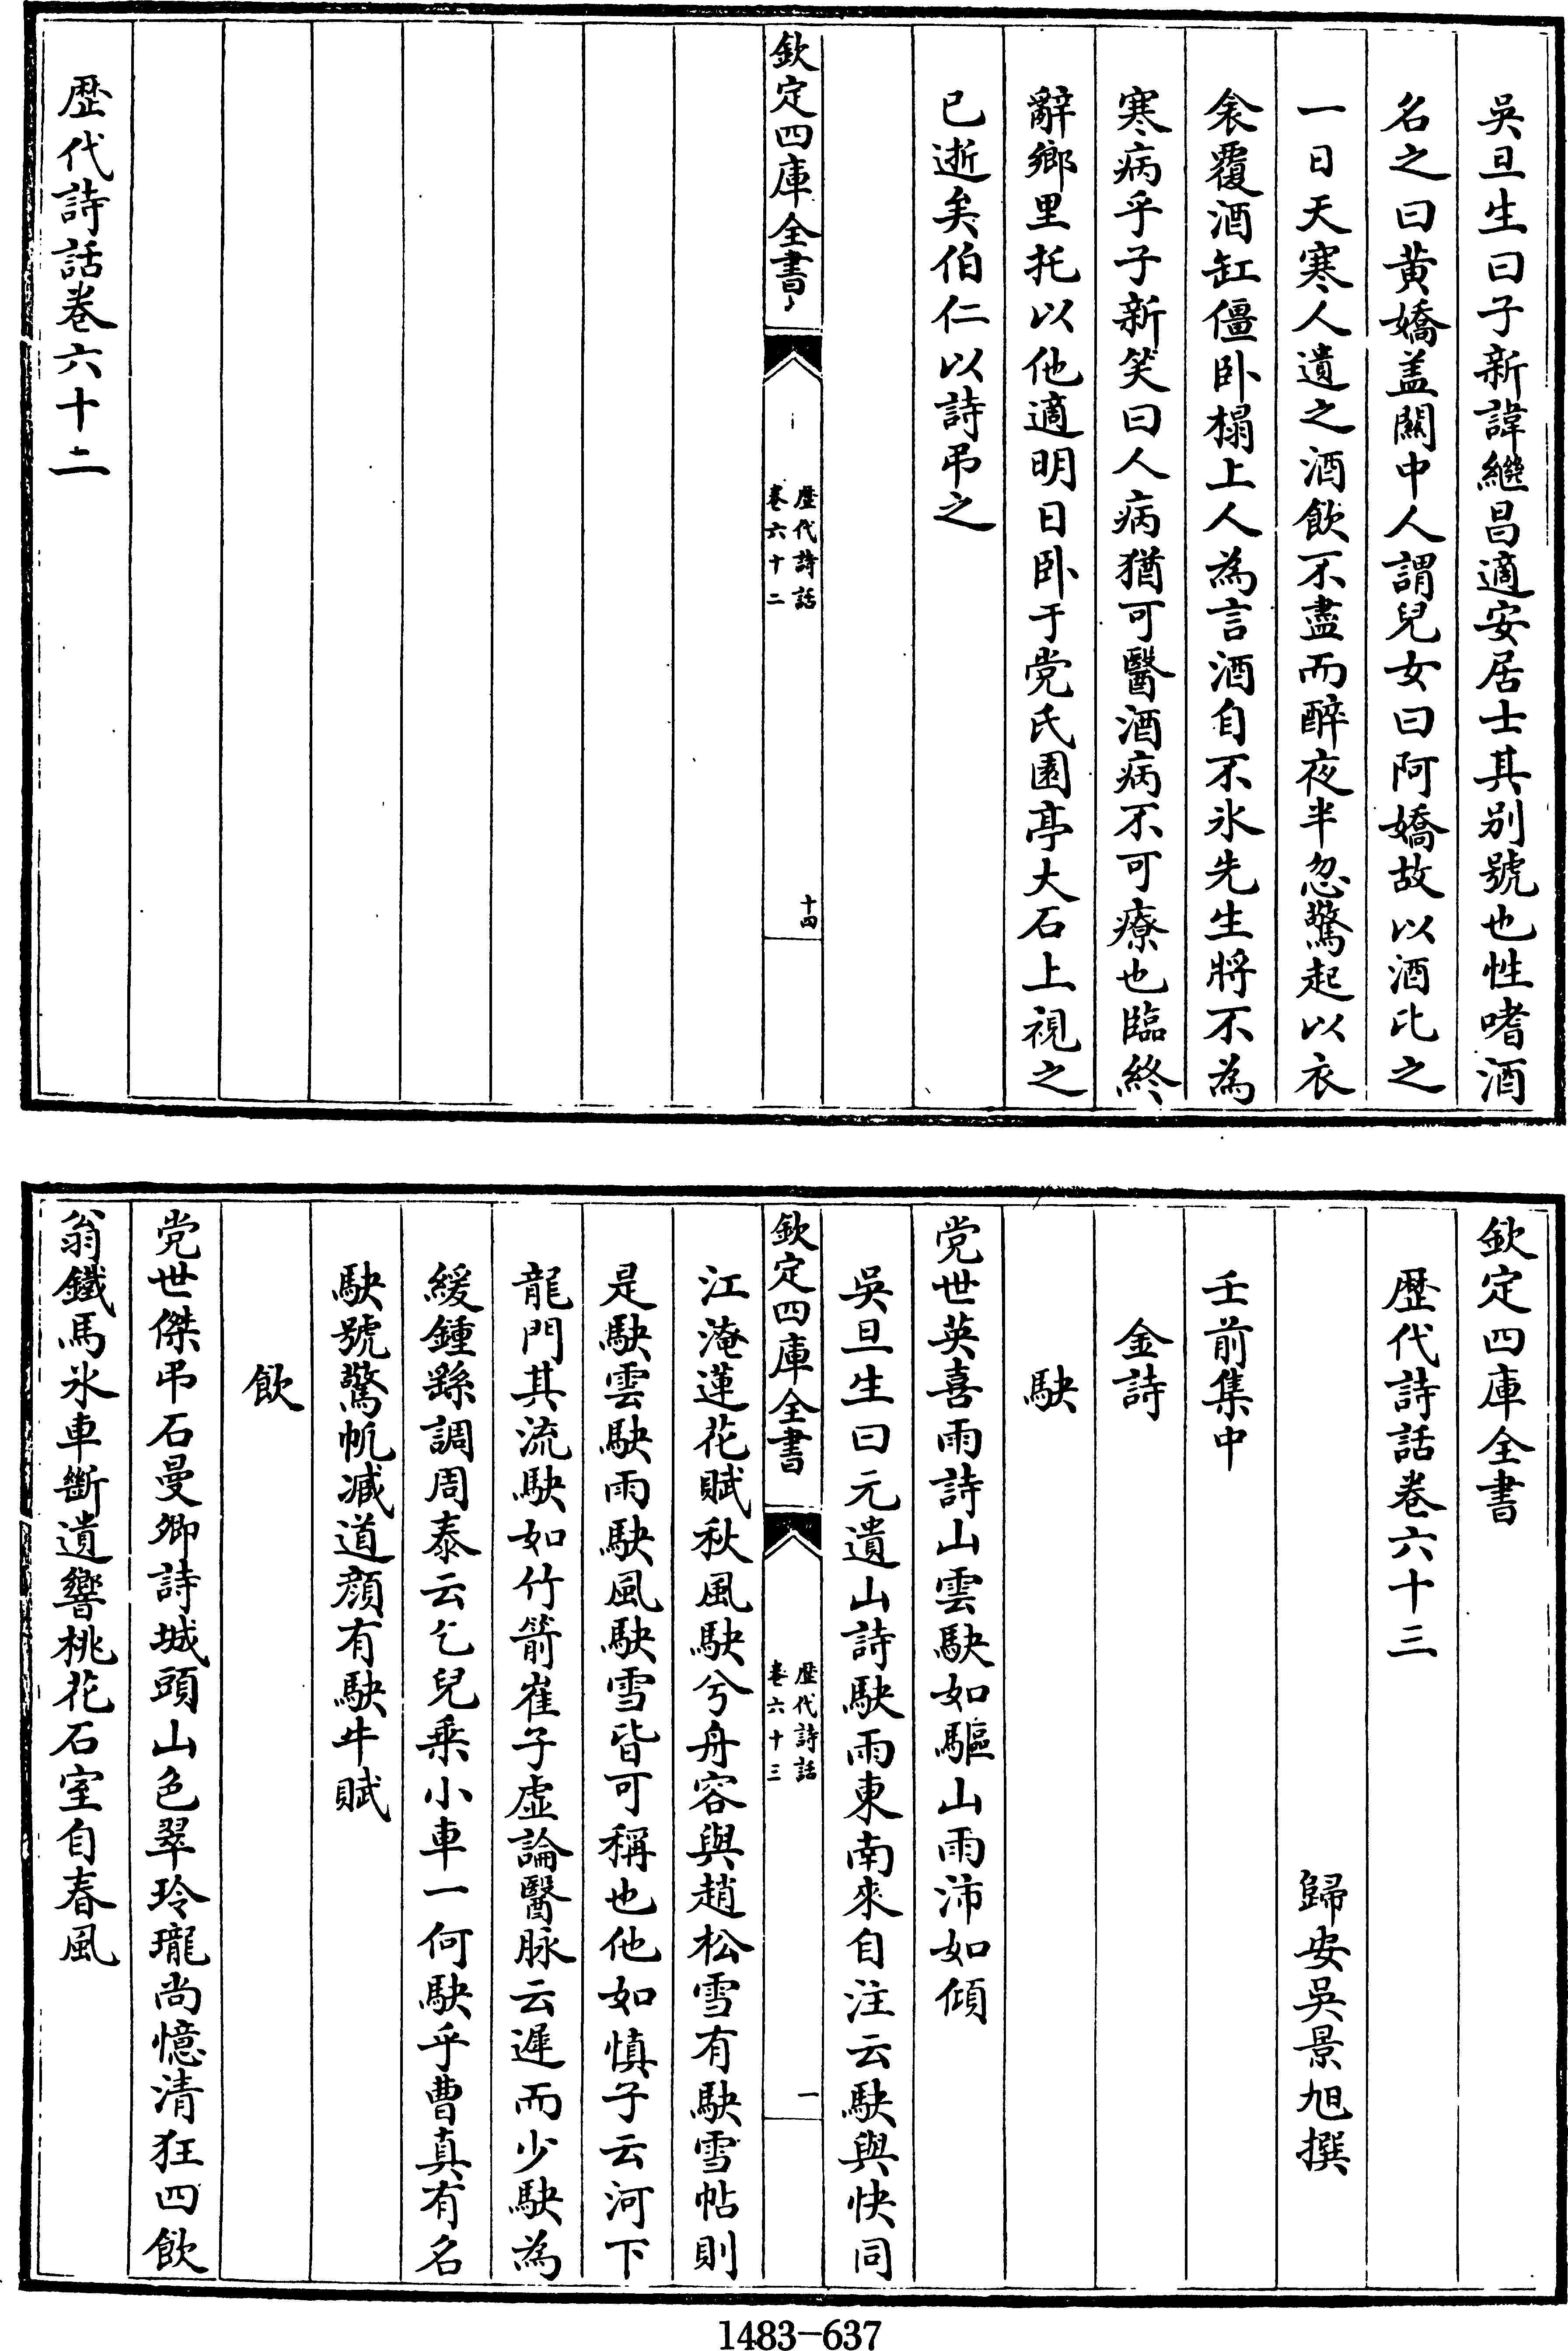 吳旦生曰子新諱繼昌適安居士其别號也性嗜酒
名之曰黄嬌盖關中人謂兒女曰阿嬌故以酒比之
一日天寒人遺之酒飲不盡而醉夜半忽驚起以衣
衾覆酒缸僵卧榻上人為言酒自不氷先生將不為
寒病乎子新笑曰人病猶可醫酒病不可療也臨終
辭鄉里托以他適明日卧于党氏園亭大石上視之
已逝矣伯仁以詩弔之
欽定四庫全書
歴代詩話
卷六十二
十四
歴代詩話卷六十二
欽定四庫全書
歴代詩話卷六十三
歸安吳景旭撰
壬前集中
金詩
駃
党世英喜雨詩山雲駃如驅山雨沛如傾
吳旦生曰元遺山詩駃雨東南來自注云駃與快同
欽定四庫全書
歴代詩話
卷六十三
一
江淹蓮花賦秋風駃兮舟容與趙松雪有駃雪帖則
是駃雲駃雨駃風駃雪皆可稱也他如慎子云河下
龍門其流駃如竹箭崔子虚論醫脉云遲而少駃為
緩鍾繇調周泰云乞兒乘小車一何駃乎曹真有名
駃號驚帆臧道顔有駃牛賦
飲
党世傑弔石曼卿詩城頭山色翠玲瓏尚憶清狂四飲
翁鐵馬氷車斷遺響桃花石室自春風
1483-637